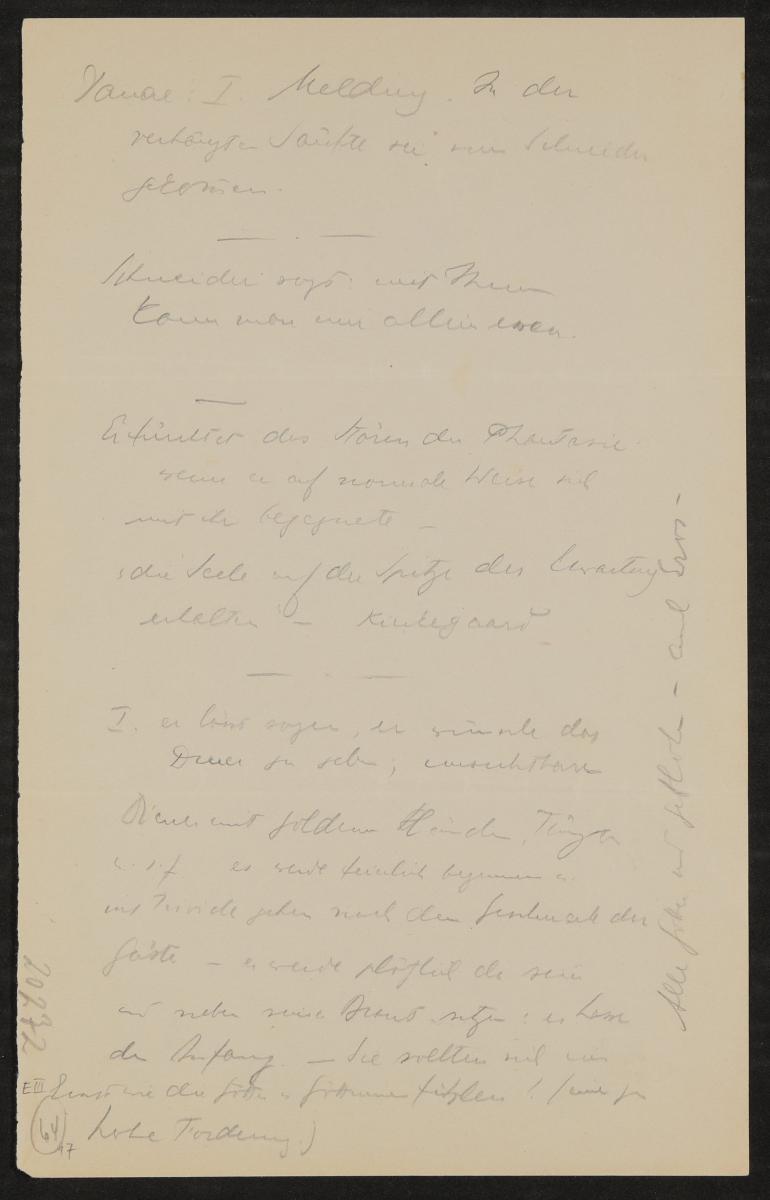 Danae: I. Meldung. In der
verhängten Sänfte sei ein Schneider
gekommen.
Schneider sagt: mit Ihnen
kann man nur allein
Er fürchtet das Stören der Phantasie
wenn er auf normale Weise sich
mit ihr begegnete –
die Seele auf der Spitze der Erwartung
erhalten – Kierkegaard
I. er lässt sagen, er wünsche das
zu sehen; unsichtbare
Diener mit goldenen Händen,
u. s. f. es werde feierlich beginnen u.
ins gehen nach dem Geschmack der
Gäste – er werde plötzlich da sein
und neben seine Braut sitzen: er hasse
den Anfang. – Sie sollten sich nur
wie die Götter u Göttinnen ! (eine zu
hohe Forderung.)
Alle Götter und – auch Eros –
20272
E III
64
47